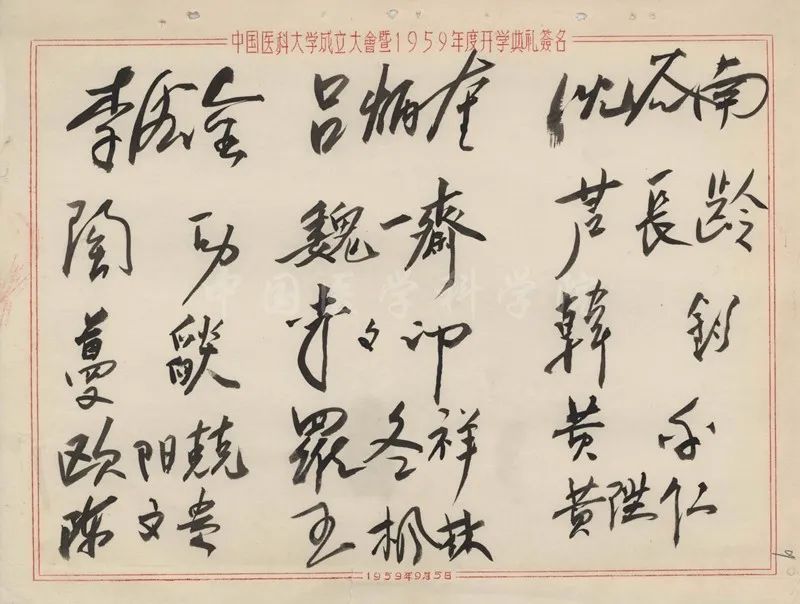 中国医科大学成立大會暨1959年度开学典礼簽名
李 全 吕炳奎 沈谷南
陶 魏一齋 芦長齡
中国医学科学院
韓
欧阳兢 羅冬祥 黄
陈文贵 王枫林 黄陞仁
1959年9月5日